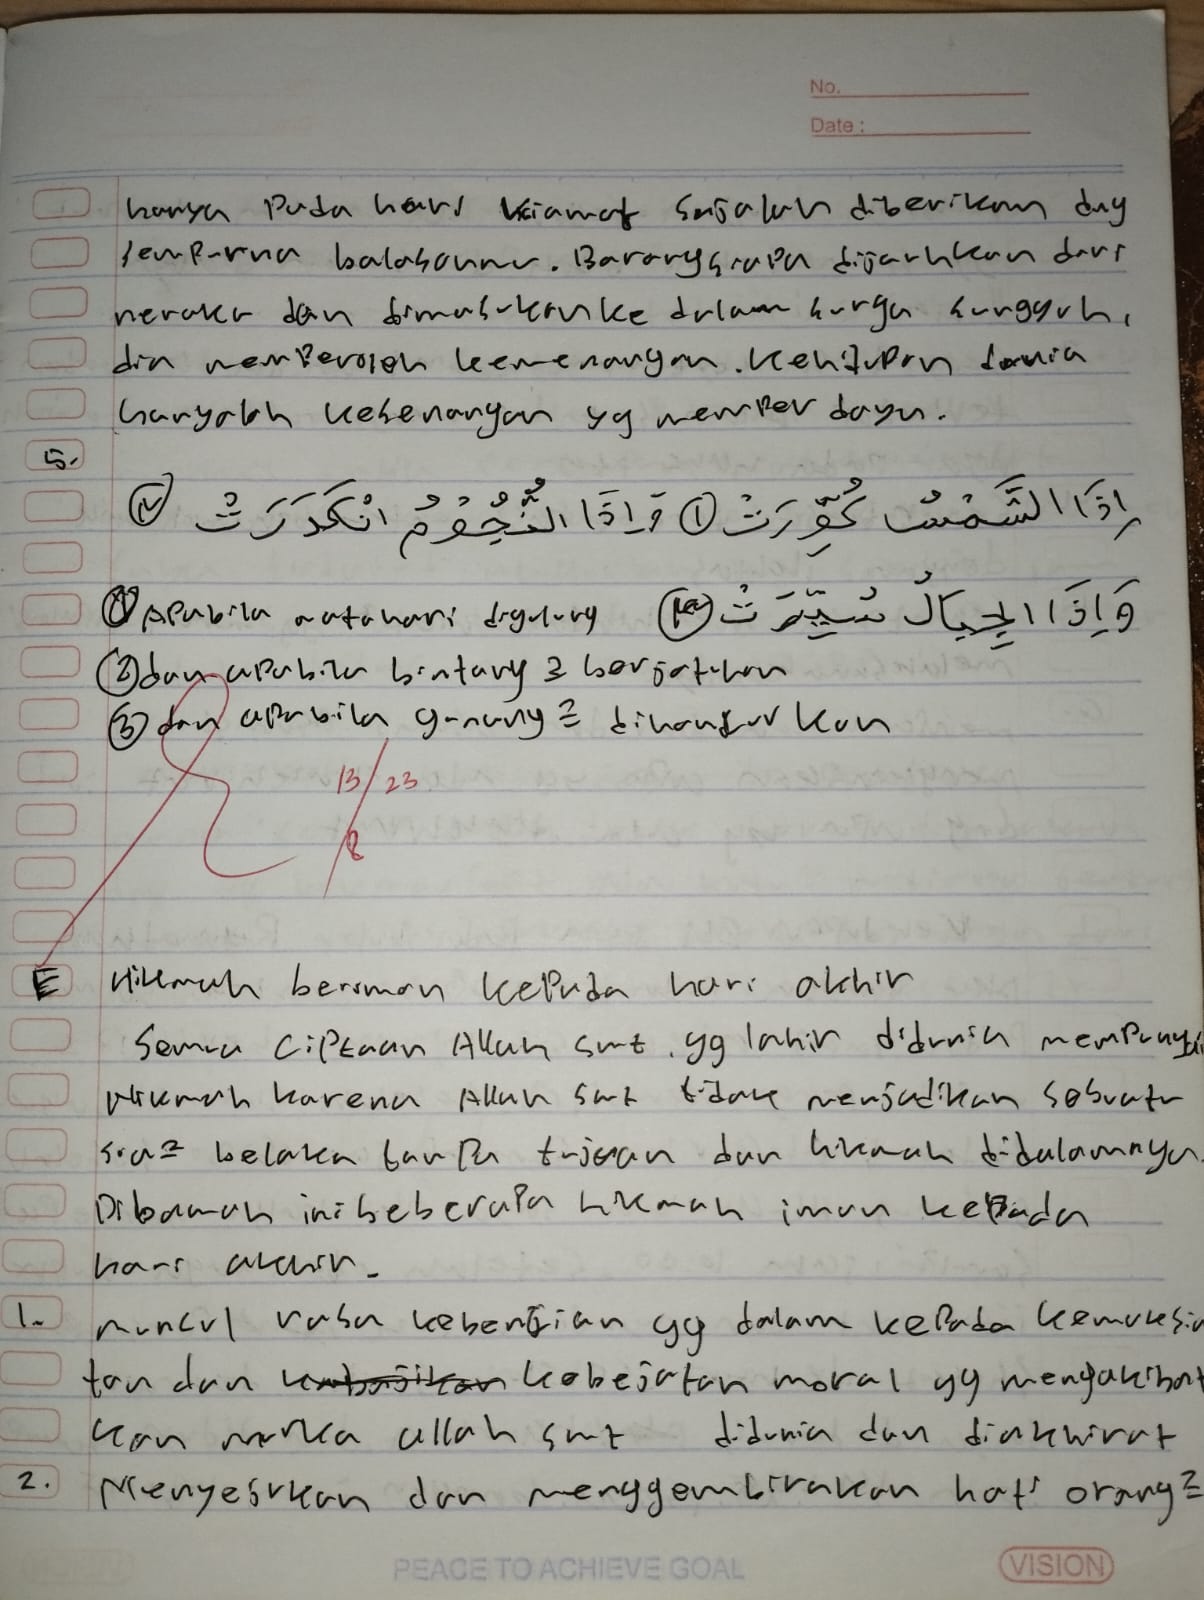 No.
Date :
hanya pada hari kiamat sajalah diberikan dng
sempurna balasanmu. Barangsiapa dijauhkan dari
neraka dan dimasukan ke dalam surga sungguh,
dia memperoleh kemenangan. Kehidupan dunia
hanyalah kesenangan yg memperdaya.
5.
اِذَا الشَّمْسُ كُوِّرَتْ ① وَاِذَا النُّجُوْمُ انْكَدَرَتْ ②
① Apabila matahari digulung وَاِذَا الْجِبَالُ سُيِّرَتْ ③
② dan apabila bintang2 berjatuhan
③ dan apabila gunung2 dihancurkan
13/23
8
E Hikmah beriman kepada hari akhir
Semua ciptaan Allah swt. yg lahir didunia mempunyai
hikmah karena Allah swt tidak menjadikan sesuatu
sia2 belaka tanpa tujuan dan hikmah didalamnya.
Dibawah ini beberapa hikmah iman kepada
hari akhir.
1. muncul rasa kebencian yg dalam kepada kemaksia
tan dan kebejatan moral yg mengakibat
kan murka allah swt didunia dan diakhirat
2. Menyejukan dan menggembirakan hati orang2
PEACE TO ACHIEVE GOAL
VISION